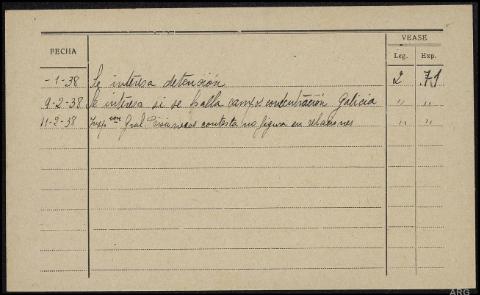 VEASE
FECHA Leg. Exp.
- 1 - 38 Se interesa detención 2 71
9-2-38 Se interesa si se halla campº concentración Galicia " "
11-2-38 Inspcon Gral Prisioneros contesta no figura en relaciones " "
ARG